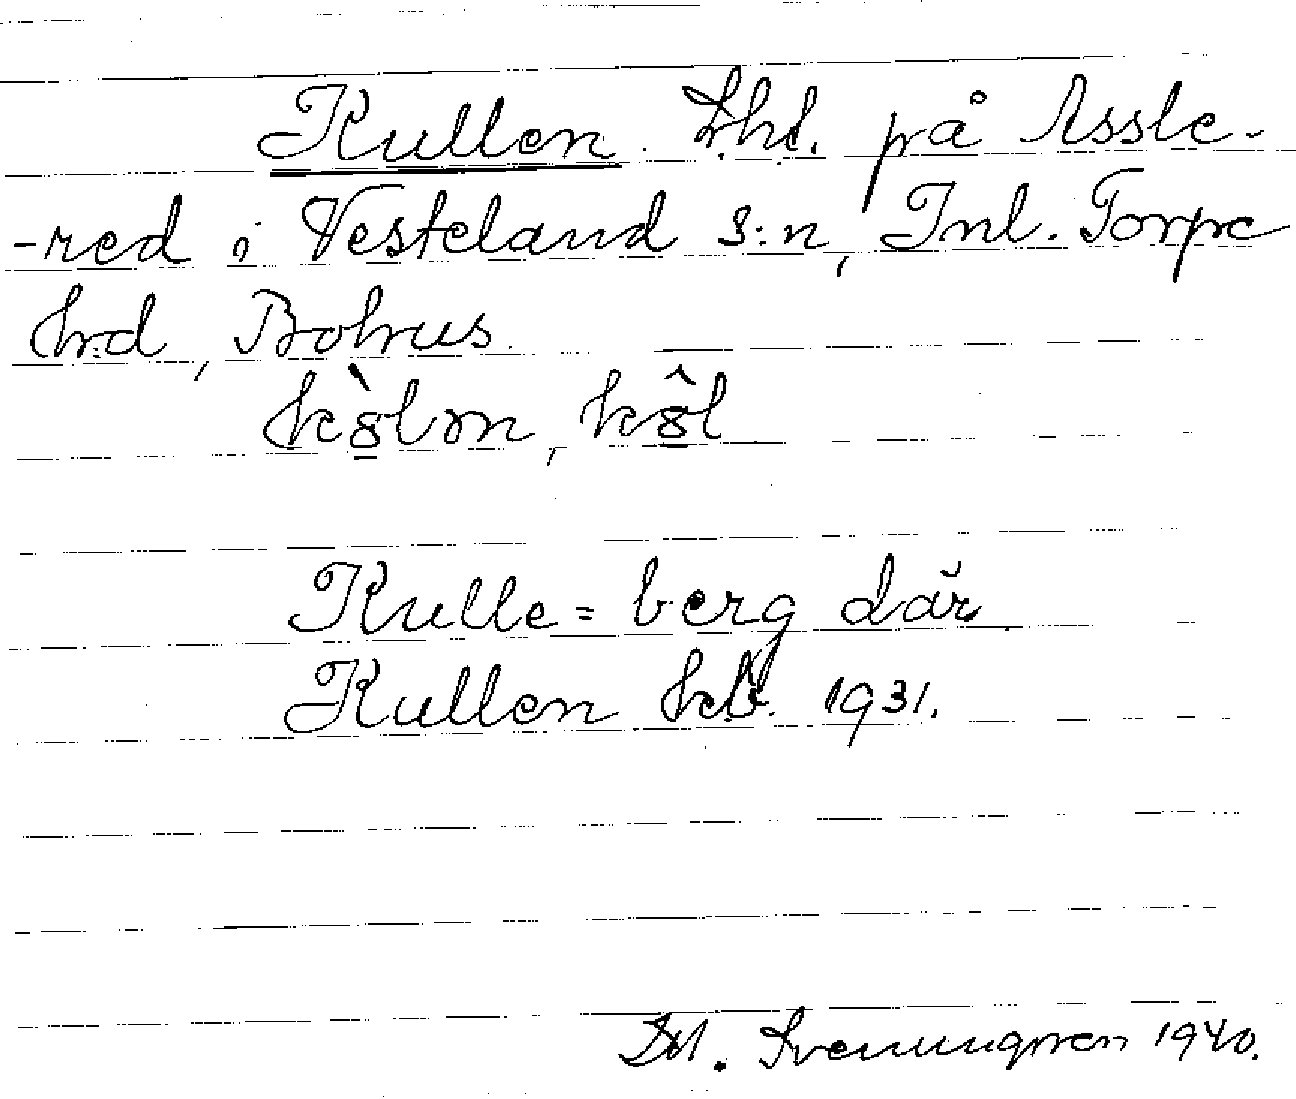 Kullen. Lhl. på Assle-
-red i Vesteland s:n, Inl. Torpe
hrd, Bohus.
Kulle = berg där
Kullen kb. 1931.
Svenungsson 1940.